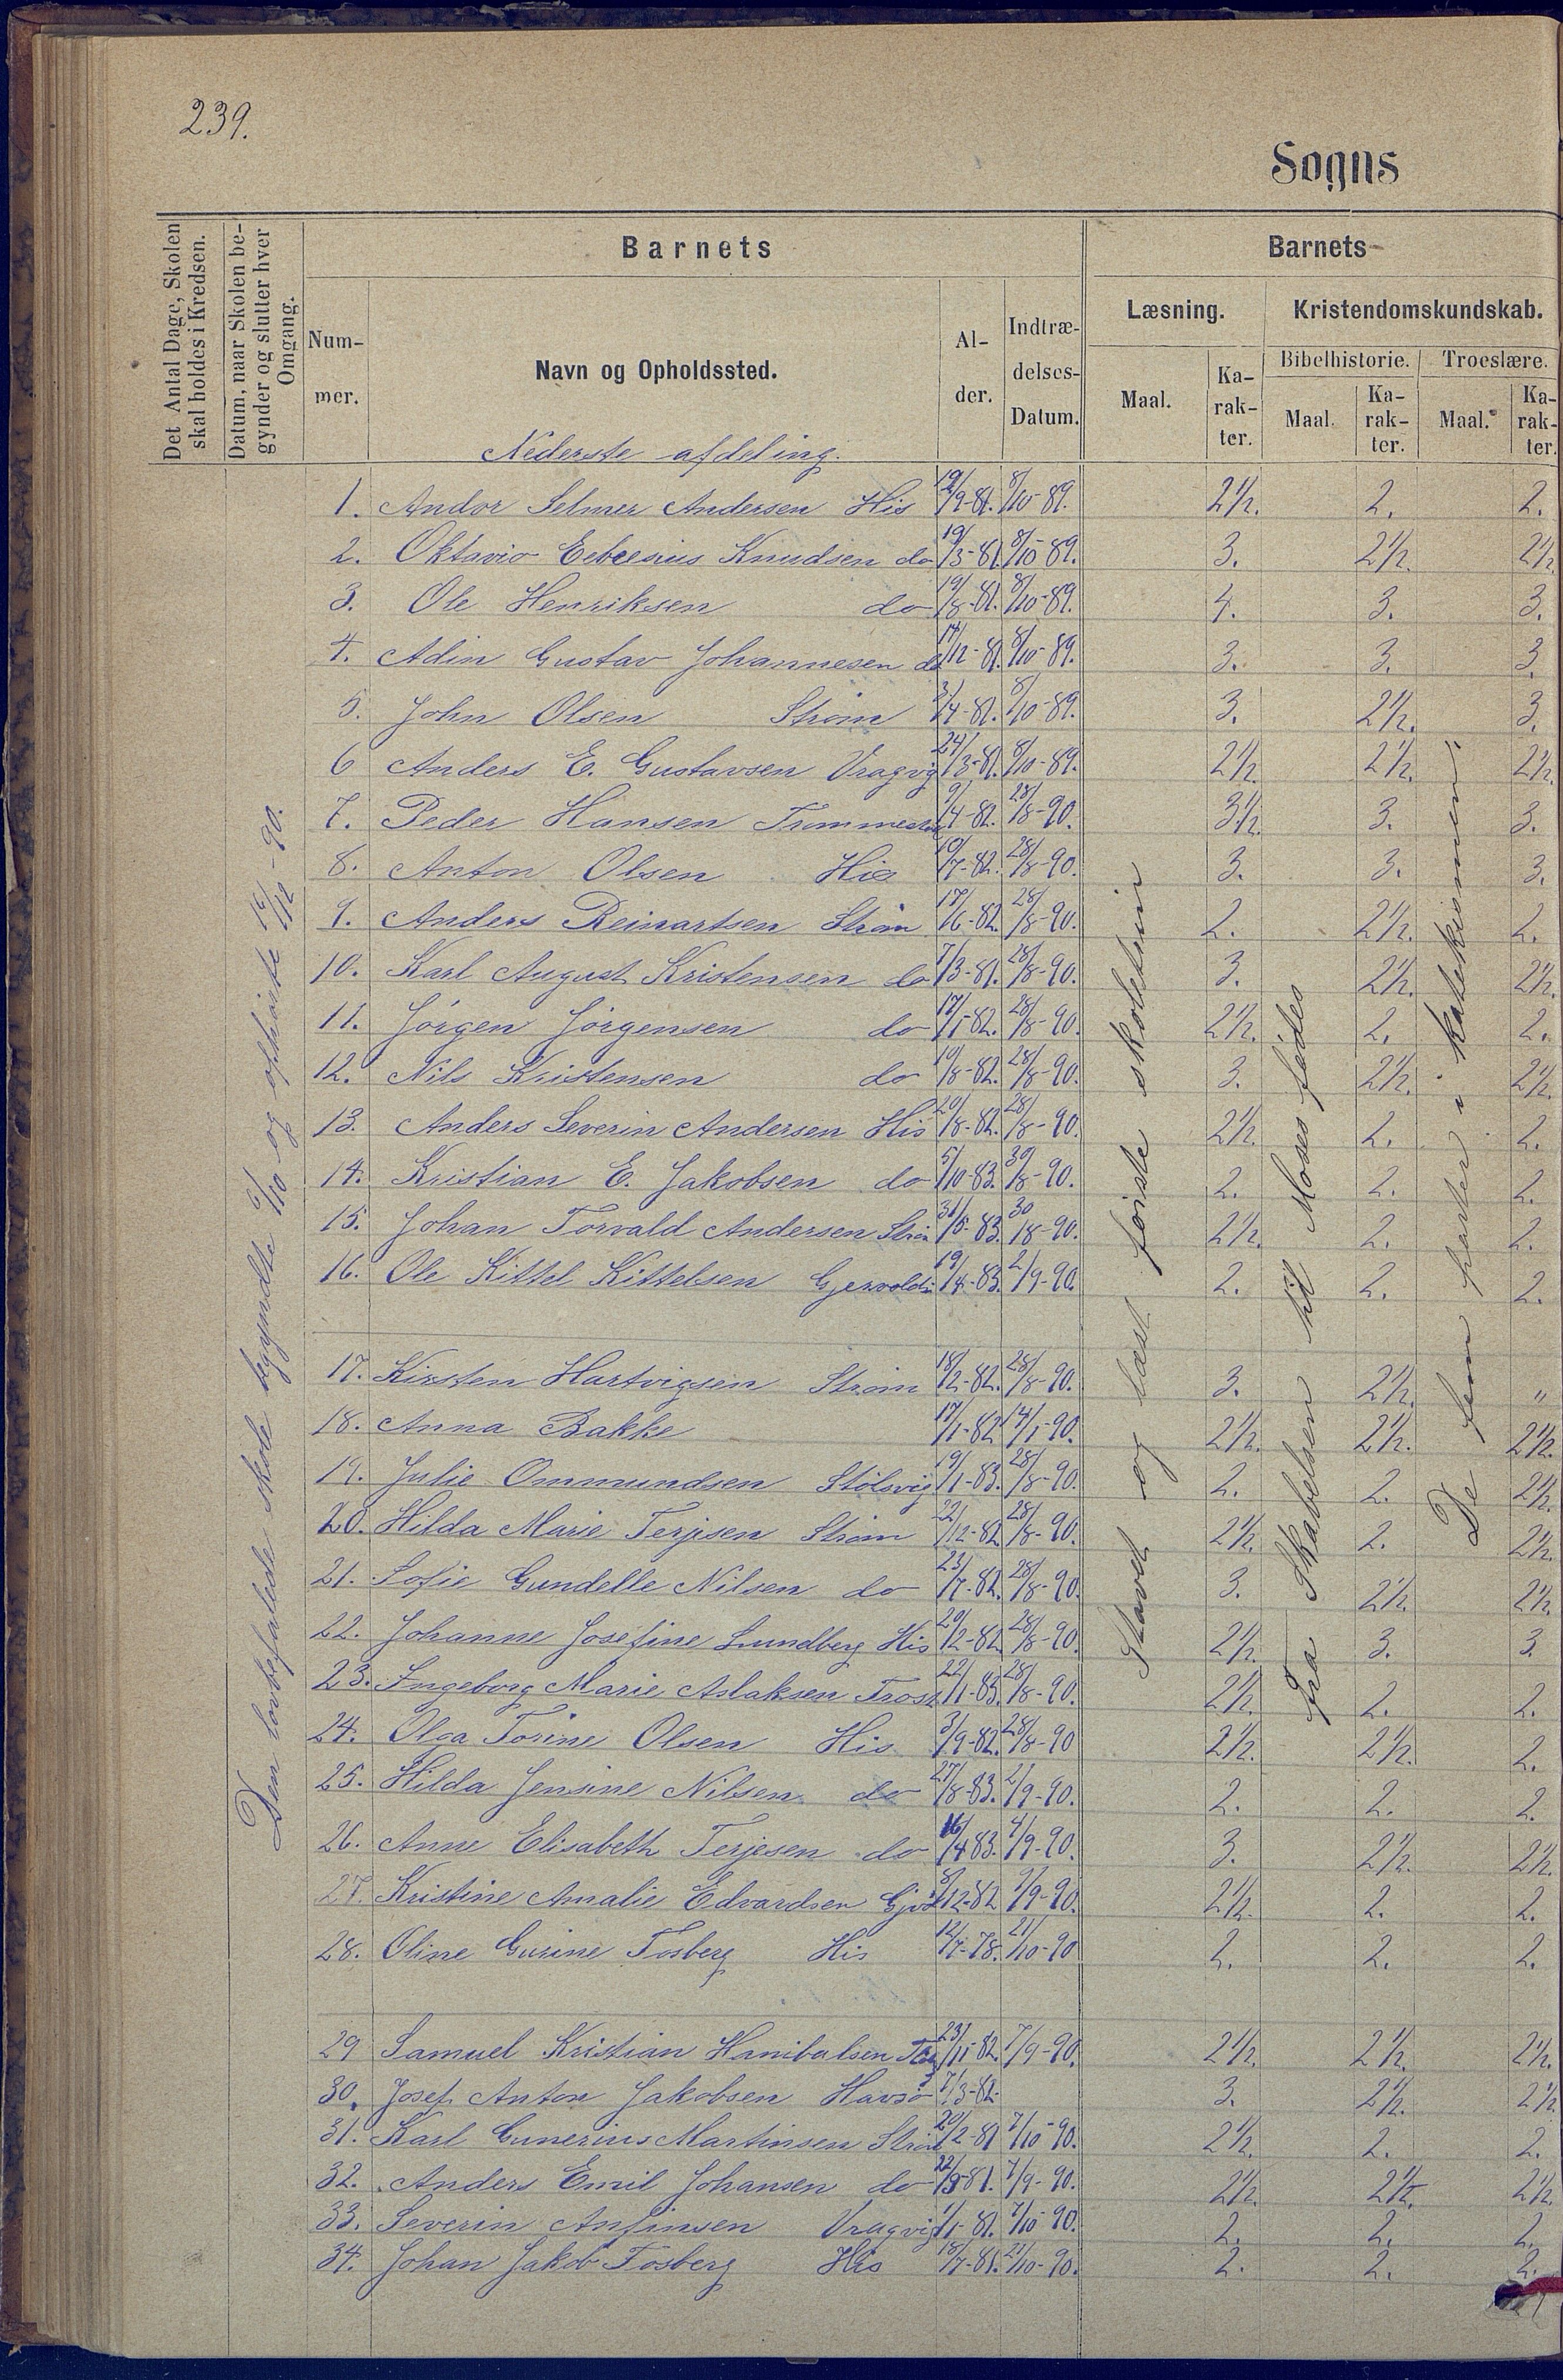 239.
Sogns
Det Antal Dage, Skolen skal holdes i Kredsen.
Datum, naar Skolen begynder og slutter hver Omgang.
Barnets
Barnets
Num-
mer.
Navn og Opholdssted.
Al-
der.
Indtræ-
delses-
Datum.
Læsning.
Kristendomskundskab.
Maal.
Ka-
rak-
ter.
Bibelhistorie.
Troeslære.
Maal.
Ka-
rak-
ter.
Maal.
Ka-
rak-
ter.
Nederste afdeling.
Den lovbefalede skole begyndte 6/10 og ophørte 16/12 - 90.
Stavet og læst første skoletrin
Fra Skabelsen til Moses fødes
De fem parter i katekismen
1. Andor Selmer Andersen His 19/9-81. 8/10-89. 2½. 2. 2.
2. Oktavio Knudsen do 19/3-81. 8/10-89. 3. 2½. 2½.
3. Ole Henriksen do 19/8-81. 8/10-89. 4. 3. 3.
4. Adin Gustav Johannesen do 14/12-81. 8/10-89. 3. 3. 3
5. John Olsen Strøm 3/4-81. 8/10-89. 3. 2½. 3.
6 Anders E. Gustavsen Vragvig 24/3-81. 8/10-89. 2½. 2½. 2½.
7. Peder Hansen 9/4-82. 28/8-90. 3½. 3. 3.
8. Anton Olsen His 10/7-82. 28/8-90. 3. 3. 3.
9. Anders Reinartsen Strøm 17/6-82. 28/8-90. 2. 2½. 2.
10. Karl August Kristensen do 7/3-81. 28/8-90. 3. 2½. 2½.
11. Jørgen Jørgensen do 17/1-82. 28/8-90. 2½. 2. 2.
12. Nils Kristensen do 19/8-82. 28/8-90. 3. 2½. 2½.
13. Anders Severin Andersen His 20/8-82. 28/8-90. 2½. 2. 2.
14. Kristian E. Jakobsen do 5/10-83. 30/8-90. 2. 2. 2.
15. Johan Torvald Andersen Strøm 31/5-83. 30/8-90. 2½. 2. 2.
16. Ole Kittel Kittelsen 19/4-83. 2/9-90. 2. 2. 2.
17. Kirsten Hartvigsen Strøm 18/2-82. 28/8-90. 3. 2½. "
18. Anna Bakke 17/1-82 14/1-90. 2½. 2½. 2½.
19. Julie Ommundsen Stølsvig 19/1-83. 28/8-90. 2. 2. 2½.
20. Hilda Marie Terjesen Strøm 22/12-82 28/8-90. 2½. 2. 2½.
21. Sofie Gundelle Nilsen do 23/7-82. 28/8-90. 3. 2½. 2½.
22. Johanne Josefine Lundberg His 20/2-82. 28/8-90. 2½. 3. 3.
23. Ingeborg Marie Aslaksen 22/1-83. 28/8-90. 2½. 2. 2.
24. Olga Torine Olsen His 3/9-82. 28/8-90 2½. 2½. 2.
25. Hilda Jensine Nilsen do 27/8-83. 2/9-90. 2. 2. 2.
26. Anne Elisabeth Terjesen do 16/4 83. 4/9-90. 3. 2½. 2½.
27. Kristine Amalie Edvardsen 8/12-82 9/9-90. 2½. 2. 2.
28. Oline Gurine Fosberg His 12/7-78. 21/10-90 2. 2. 2.
29 Samuel Kristian Hanibalsen 23/11-82. 7/9-90. 2½. 2½. 2½.
30. Josef Anton Jakobsen Havsø 7/3-82. 3. 2½. 2½
31. Karl Gunerius Martinsen Strøm 20/2-81 7/10-90. 2½. 2. 2.
32. Anders Emil Johansen do 7/9-90. 2½. 2½. 2½.
33. Severin Anfinsen Vragvig 1/1-81. 7/10-90. 2. 2. 2.
34. Johan Jakob Fosberg His 18/7-81. 21/10-90. 2. 2. 2.